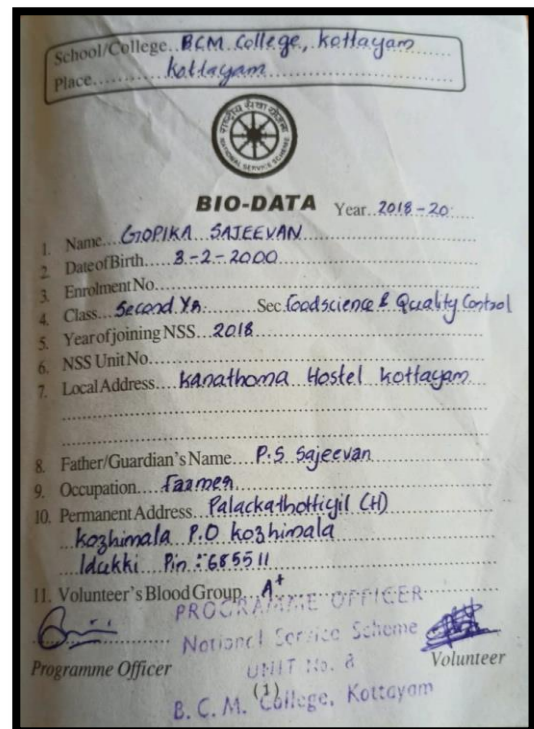 School/College..BCM College, Kottayam
Place............Kottayam
राष्ट्रीय सेवा योजना
NATIONAL SERVICE SCHEME
BIO-DATA Year..2018-20
1. Name...GOPIKA SAJEEVAN
2. Date of Birth....3-2-2000
3. Enrolment No.
4. Class....Second Yr. Sec.Foodscience & Quality Control
5. Year of joining NSS...2018
6. NSS Unit No.
7. Local Address....Kanathoma Hostel Kottayam
8. Father/Guardian's Name....P.S Sajeevan
9. Occupation.....Farmer
10. Permanent Address..Palackathottiyil (H)
Kozhimala P.O Kozhimala
Idukki Pin :- 685511
11. Volunteer's Blood Group...A+
PROGRAMME OFFICER
National Service Scheme
Programme Officer UNIT No. 8 Volunteer
(1)
B. C. M. College, Kottayam